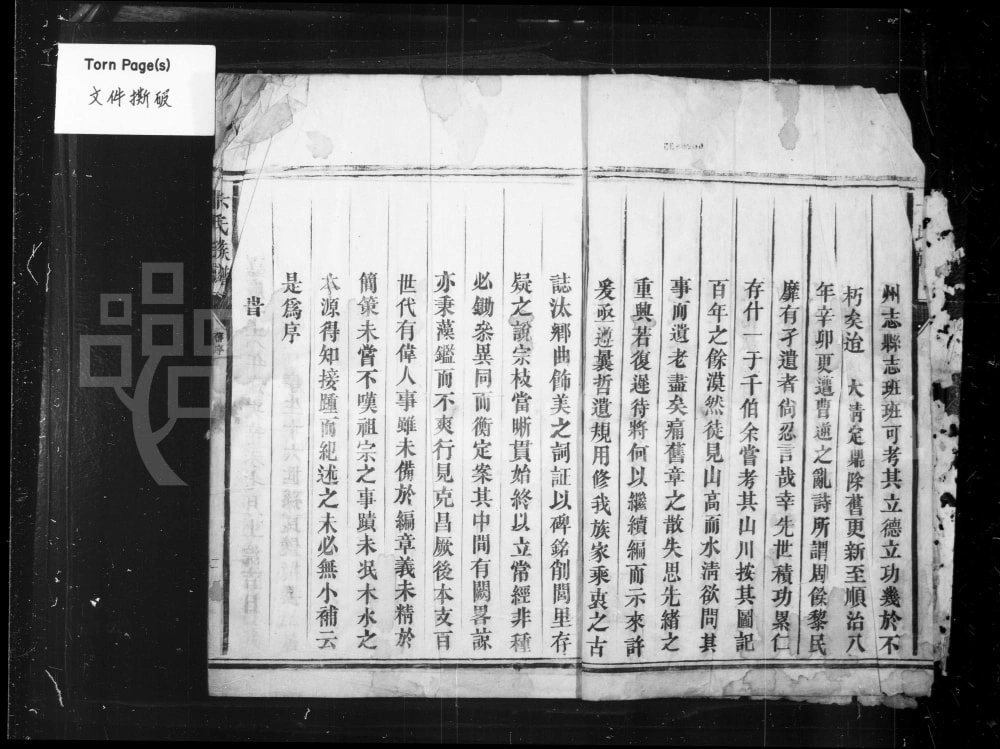 Torn Page(s)
文件撕破
州志縣志班班可考其立德立功幾於不
朽矣迨 大清定鼎除舊更新至順治八
年辛卯更遭曹逆之亂詩所謂周餘黎民
靡有孑遺者尙忍言哉幸先世積功累仁
存什一于千伯余嘗考其山川按其圖記
百年之餘漠然徒見山高而水淸欲問其
事而遺老盡矣痛舊章之散失思先緒之
重興若復遲待將何以繼續編而示來許
爰亟遵曩哲遺規用修我族家乘衷之古
誌汰鄉曲飾美之詞証以碑銘削閭里存
疑之說宗枝當晰貫始終以立常經非種
必鋤叅異同而衡定案其中間有闕畧諒
亦秉藻鑑而不爽行見克昌厥後本支百
世代有偉人事雖未備於編章義未精於
簡策未嘗不嘆祖宗之事蹟未泯木水之
本源得知接踵而紀述之未必無小補云
是爲序
氏族譜